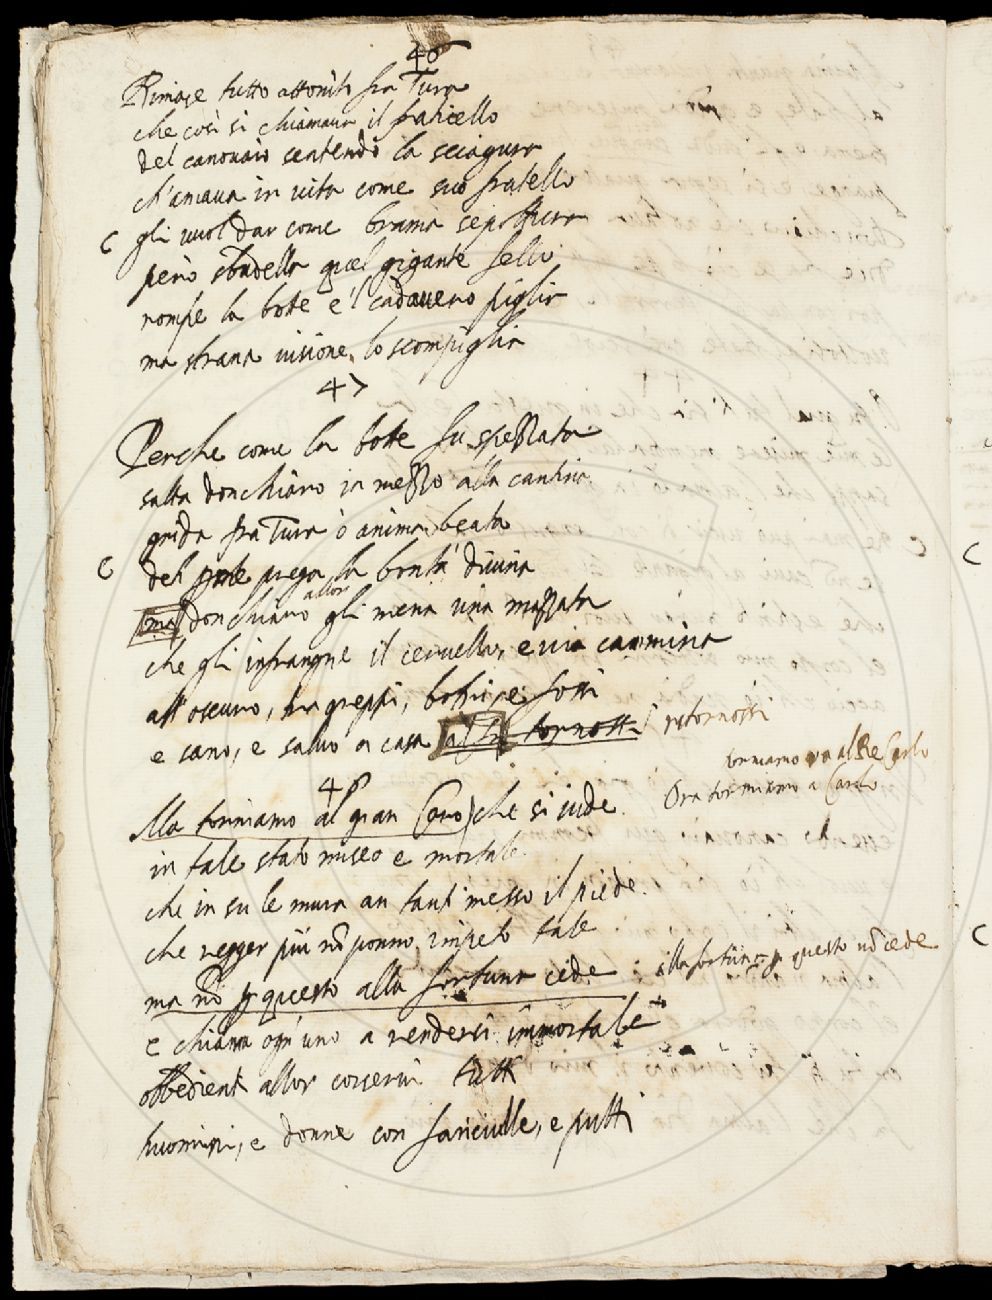 46
Rimase tutto attonito fra Tura
che così si chiamaua il fraticello
del canouaio sentendo la sciagura
ch'amaua in uita come suo fratello
gli uuol dar come brama sepoltura
però
quel gigante felli
rompe la botte e 'l cadauero piglia
ma strana uisione lo scompiglia
47
Perche come la botte fu spezzata
salta don chiaro in mezzo alla cantina
grida fra Tura ò anima beata
del prega la bontà diuina
ma don chiaro allor gli mena una mazzata
che gli infrangne il ceruello, e uia cammina
all'oscuro, tra greppi, e fossi
e sano, e saluo a casa tornossi ritornossi
48
torniamo ora al Re Carlo
Ora torniamo a Carlo
Ma torniamo al gran Carlo che si uide
in tale stato misero e mortale
che in su le mura an tanti messo il piede
che regger più nõ ponno impeto tale
ma nõ p questo alla fortuna cede alla fortuna p questo nõ cede
e chiama ogn'uno a rendersi immortale
obbedienti allor corserui tutti
huomini, e donne con fanciulle, e putti